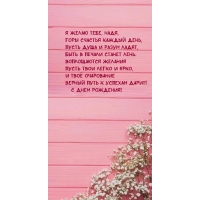 Я желаю тебе, Надя,
Горы счастья каждый день,
Пусть душа и разум ладят,
Быть в печали станет лень.
Воплощаются желания
Пусть твои легко и ярко,
И твое очарование
Верный путь к успехам дарит!
С Днем рождения!